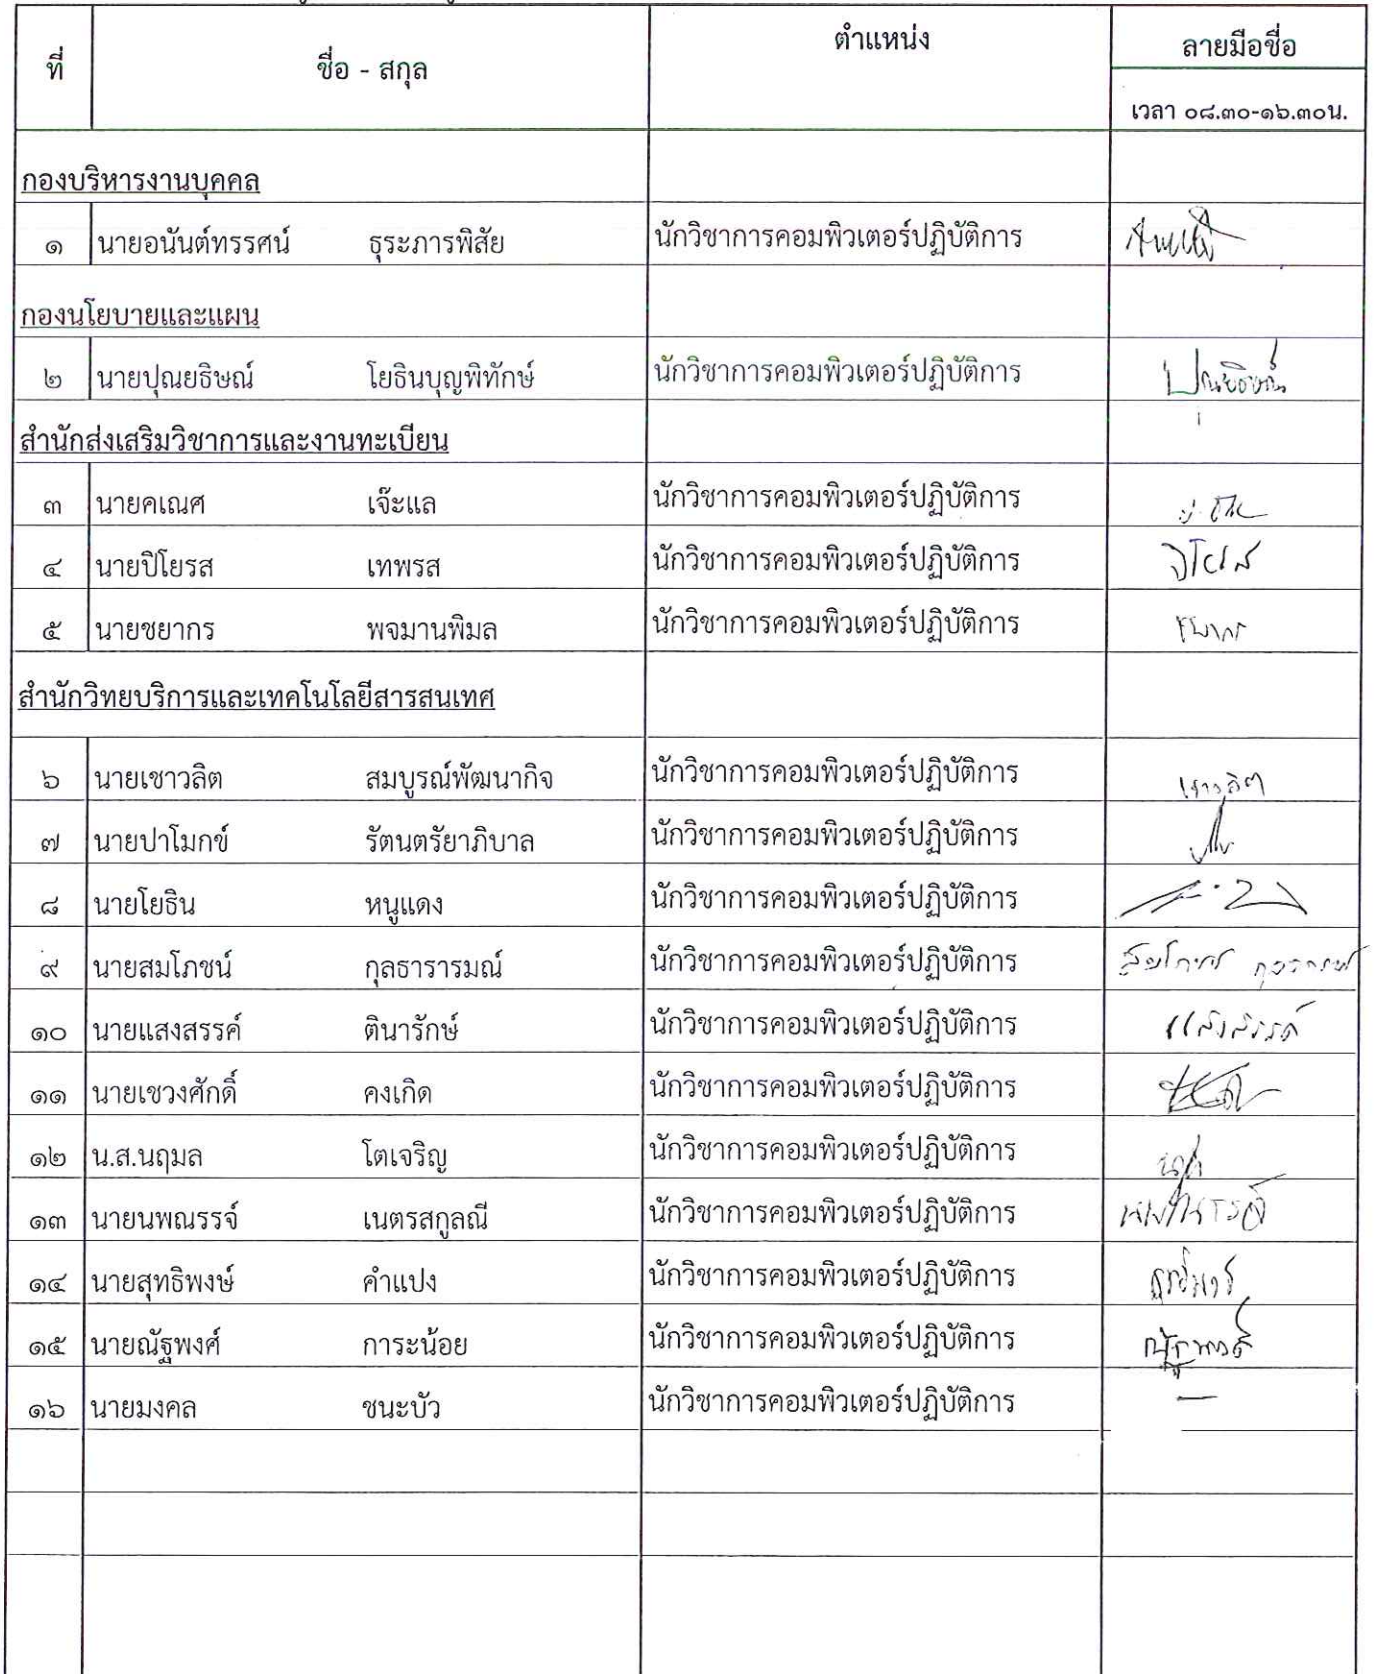 ที่ ชื่อ - สกุล ตำแหน่ง ลายมือชื่อ
เวลา ๐๘.๓๐-๑๖.๓๐น.
กองบริหารงานบุคคล
๑ นายอนันต์ทรรศน์ ธุระภารพิสัย นักวิชาการคอมพิวเตอร์ปฏิบัติการ
กองนโยบายและแผน
๒ นายปุณยธิษณ์ โยธินบุญพิทักษ์ นักวิชาการคอมพิวเตอร์ปฏิบัติการ ปุณยธิษณ์
สำนักส่งเสริมวิชาการและงานทะเบียน
๓ นายคเณศ เจ๊ะแล นักวิชาการคอมพิวเตอร์ปฏิบัติการ
๔ นายปิโยรส เทพรส นักวิชาการคอมพิวเตอร์ปฏิบัติการ ปิโยรส
๕ นายชยากร พจมานพิมล นักวิชาการคอมพิวเตอร์ปฏิบัติการ ชยากร
สำนักวิทยบริการและเทคโนโลยีสารสนเทศ
๖ นายเชาวลิต สมบูรณ์พัฒนากิจ นักวิชาการคอมพิวเตอร์ปฏิบัติการ เชาวลิต
๗ นายปาโมกข์ รัตนตรัยาภิบาล นักวิชาการคอมพิวเตอร์ปฏิบัติการ
๘ นายโยธิน หนูแดง นักวิชาการคอมพิวเตอร์ปฏิบัติการ
๙ นายสมโภชน์ กุลธารารมณ์ นักวิชาการคอมพิวเตอร์ปฏิบัติการ
๑๐ นายแสงสรรค์ ตินารักษ์ นักวิชาการคอมพิวเตอร์ปฏิบัติการ แสงสรรค์
๑๑ นายเชวงศักดิ์ คงเกิด นักวิชาการคอมพิวเตอร์ปฏิบัติการ
๑๒ น.ส.นฤมล โตเจริญ นักวิชาการคอมพิวเตอร์ปฏิบัติการ
๑๓ นายนพณรรจ์ เนตรสกูลณี นักวิชาการคอมพิวเตอร์ปฏิบัติการ
๑๔ นายสุทธิพงษ์ คำแปง นักวิชาการคอมพิวเตอร์ปฏิบัติการ
๑๕ นายณัฐพงศ์ การะน้อย นักวิชาการคอมพิวเตอร์ปฏิบัติการ ณัฐพงศ์
๑๖ นายมงคล ชนะบัว นักวิชาการคอมพิวเตอร์ปฏิบัติการ –